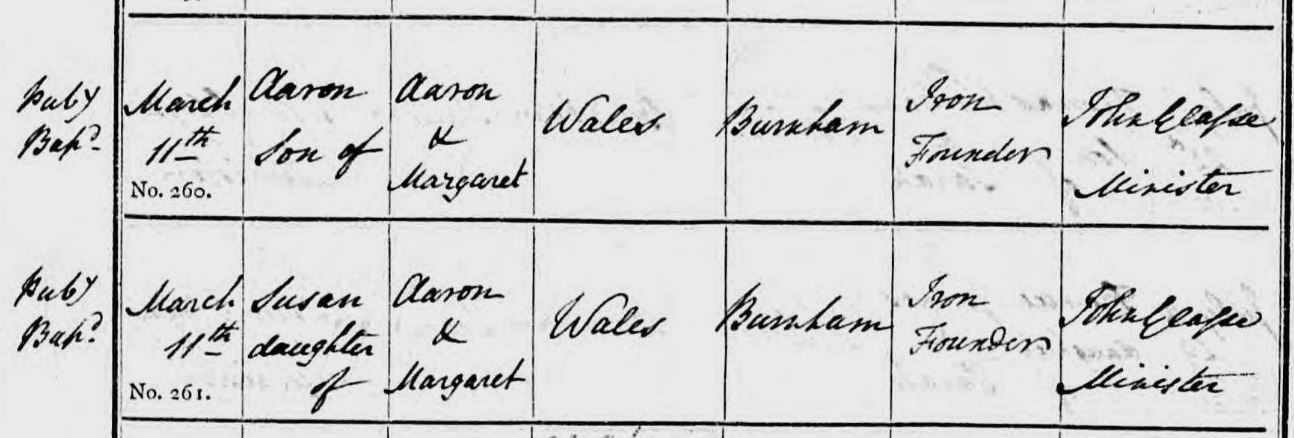 Puby
Bapd.
March
11th
No. 260.
Aaron
Son of
Aaron
&
Margaret
Wales
Burnham
Iron
Founder
John Glasse
Minister
Puby
Bapd.
March
11th
No. 261.
Susan
daughter
of
Aaron
&
Margaret
Wales
Burnham
Iron
Founder
John Glasse
Minister